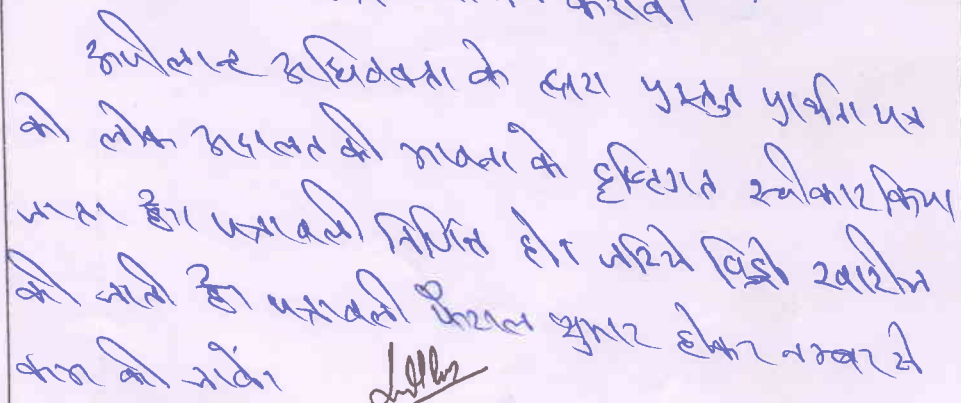 करावें।
अपीलान्ट अधिवक्ता के द्वारा प्रस्तुत प्रार्थना पत्र
को लोक अदालत की भावना के दृष्टिगत स्वीकार किया
जाता है। पत्रावली निर्णित हो जरिये विड्रो खारीज
की जाती है। पत्रावली फैसल शुमार होकर नम्बर से
कम की जावें।